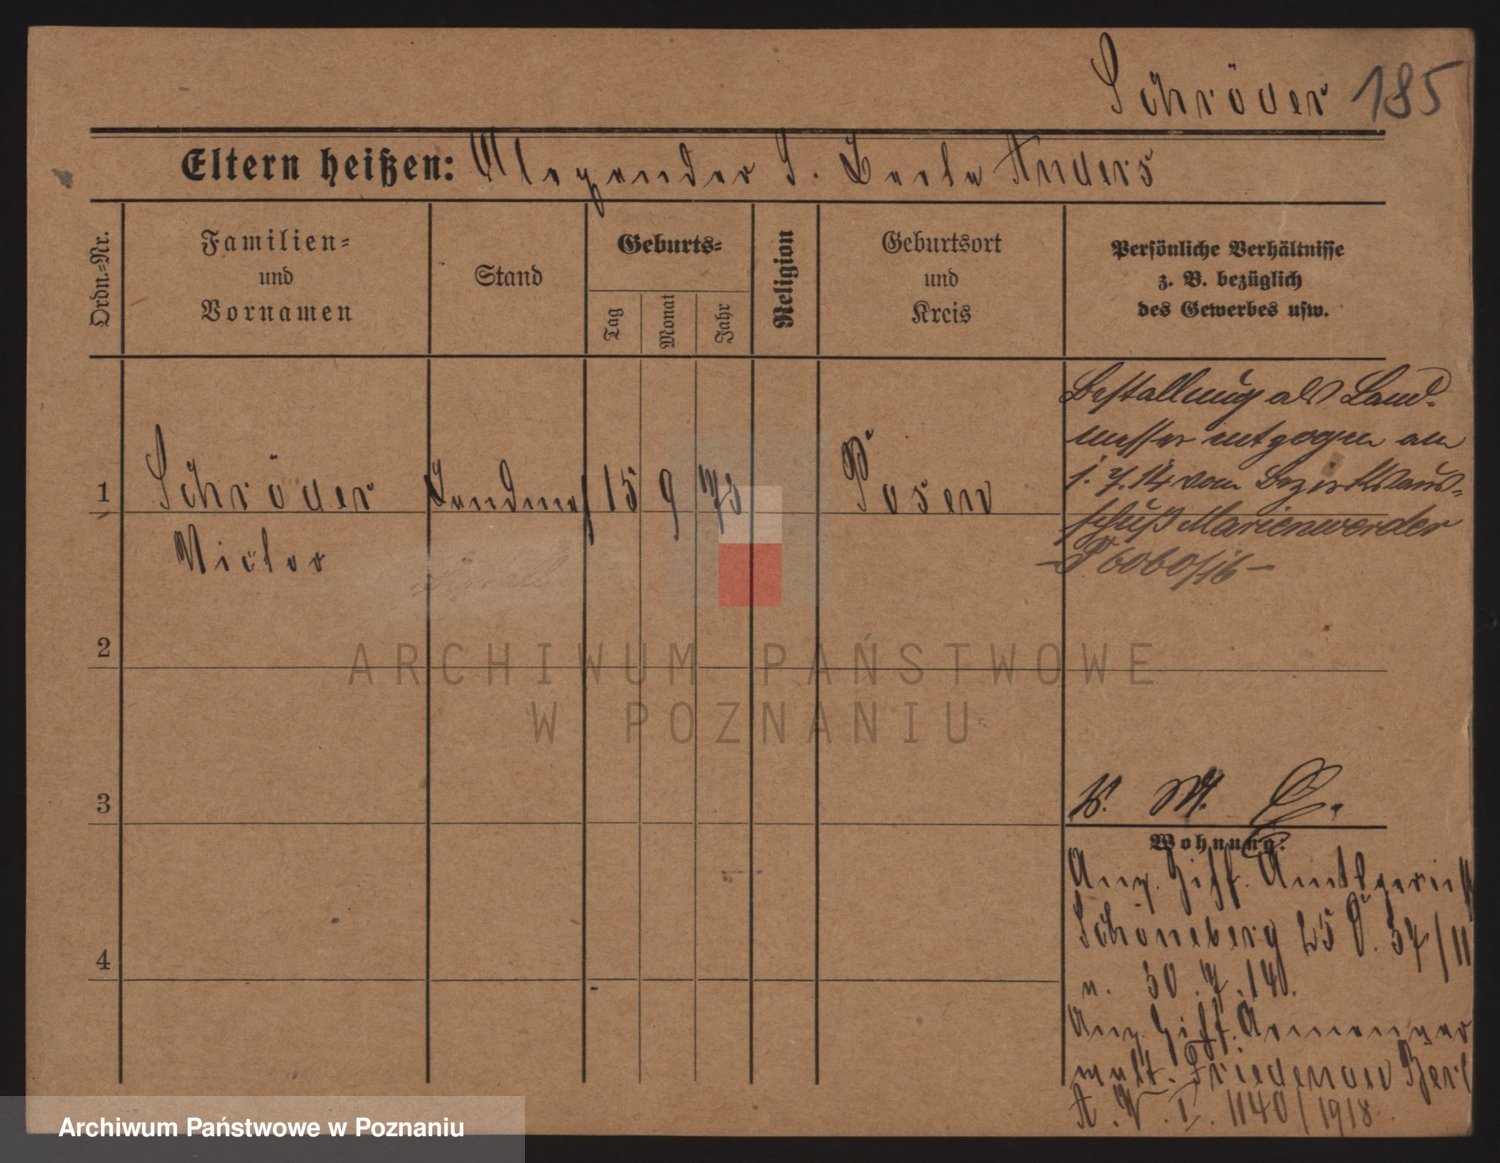 Schröder 185
Eltern heißen: Alexander S. Berta Anders
Ordn.-Nr.
Familien-
und
Vornamen
Stand
Geburts-
Tag
Monat
Jahr
Religion
Geburtsort
und
Kreis
Persönliche Verhältnisse
z. B. bezüglich
des Gewerbes usw.
1
Schröder
Victor
Landmes
15
9
73
Posen
Bestallung als Land-
messer entzogen am
1. 7. 14 vom Bezirksaus-
schuß Marienwerder
6060/16
2
3
V. M.
Wohnung:
Anz. Giff. Amtsgericht
Schöneberg 25 D. 54/11
v. 30. 7. 14.
Anz. Giff. Armenver
walt. Friedenau Berl
A. V. I. 1140/1918
4
ARCHIWUM PAŃSTWOWE
W POZNANIU
Archiwum Państwowe w Poznaniu